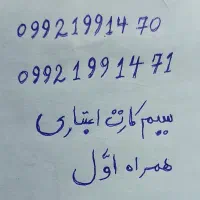 0992 1991470
0992 1991471
سیم کارت اعتباری
همراه اوّل